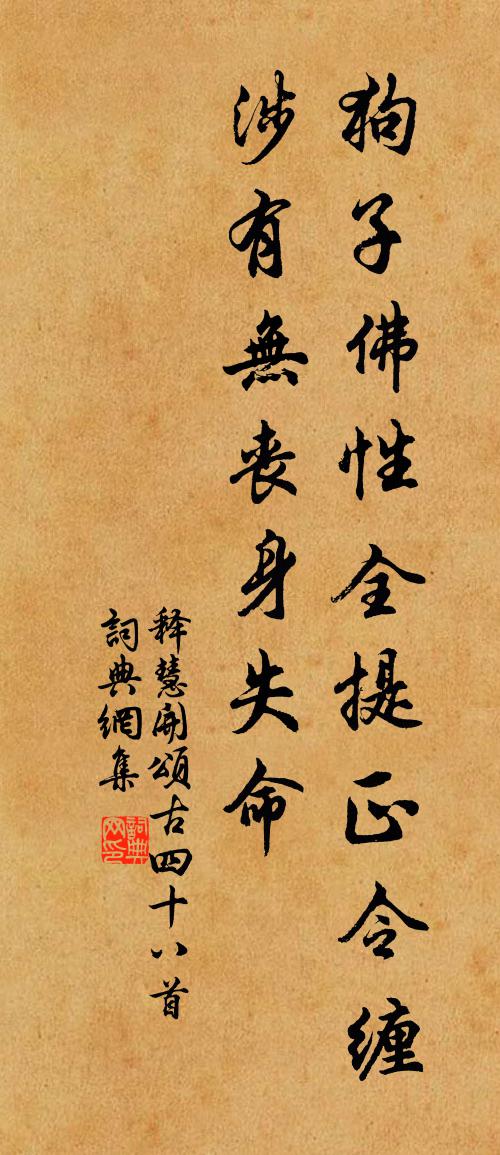 狗子佛性全提正令缠
涉有無丧身失命
释慧開頌古四十八首
詞典網集
詞典网印